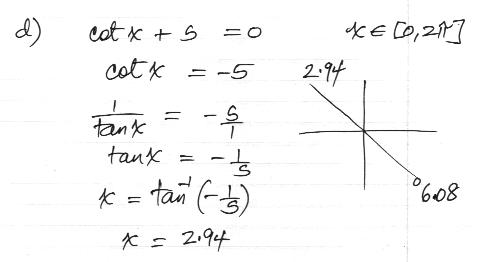 d) cot x + 5 = 0 x ∈ [0, 2π]
cot x = -5
1/tan x = -5/1
tan x = -1/5
x = tan⁻¹(-1/5)
x = 2.94
2.94
6.08